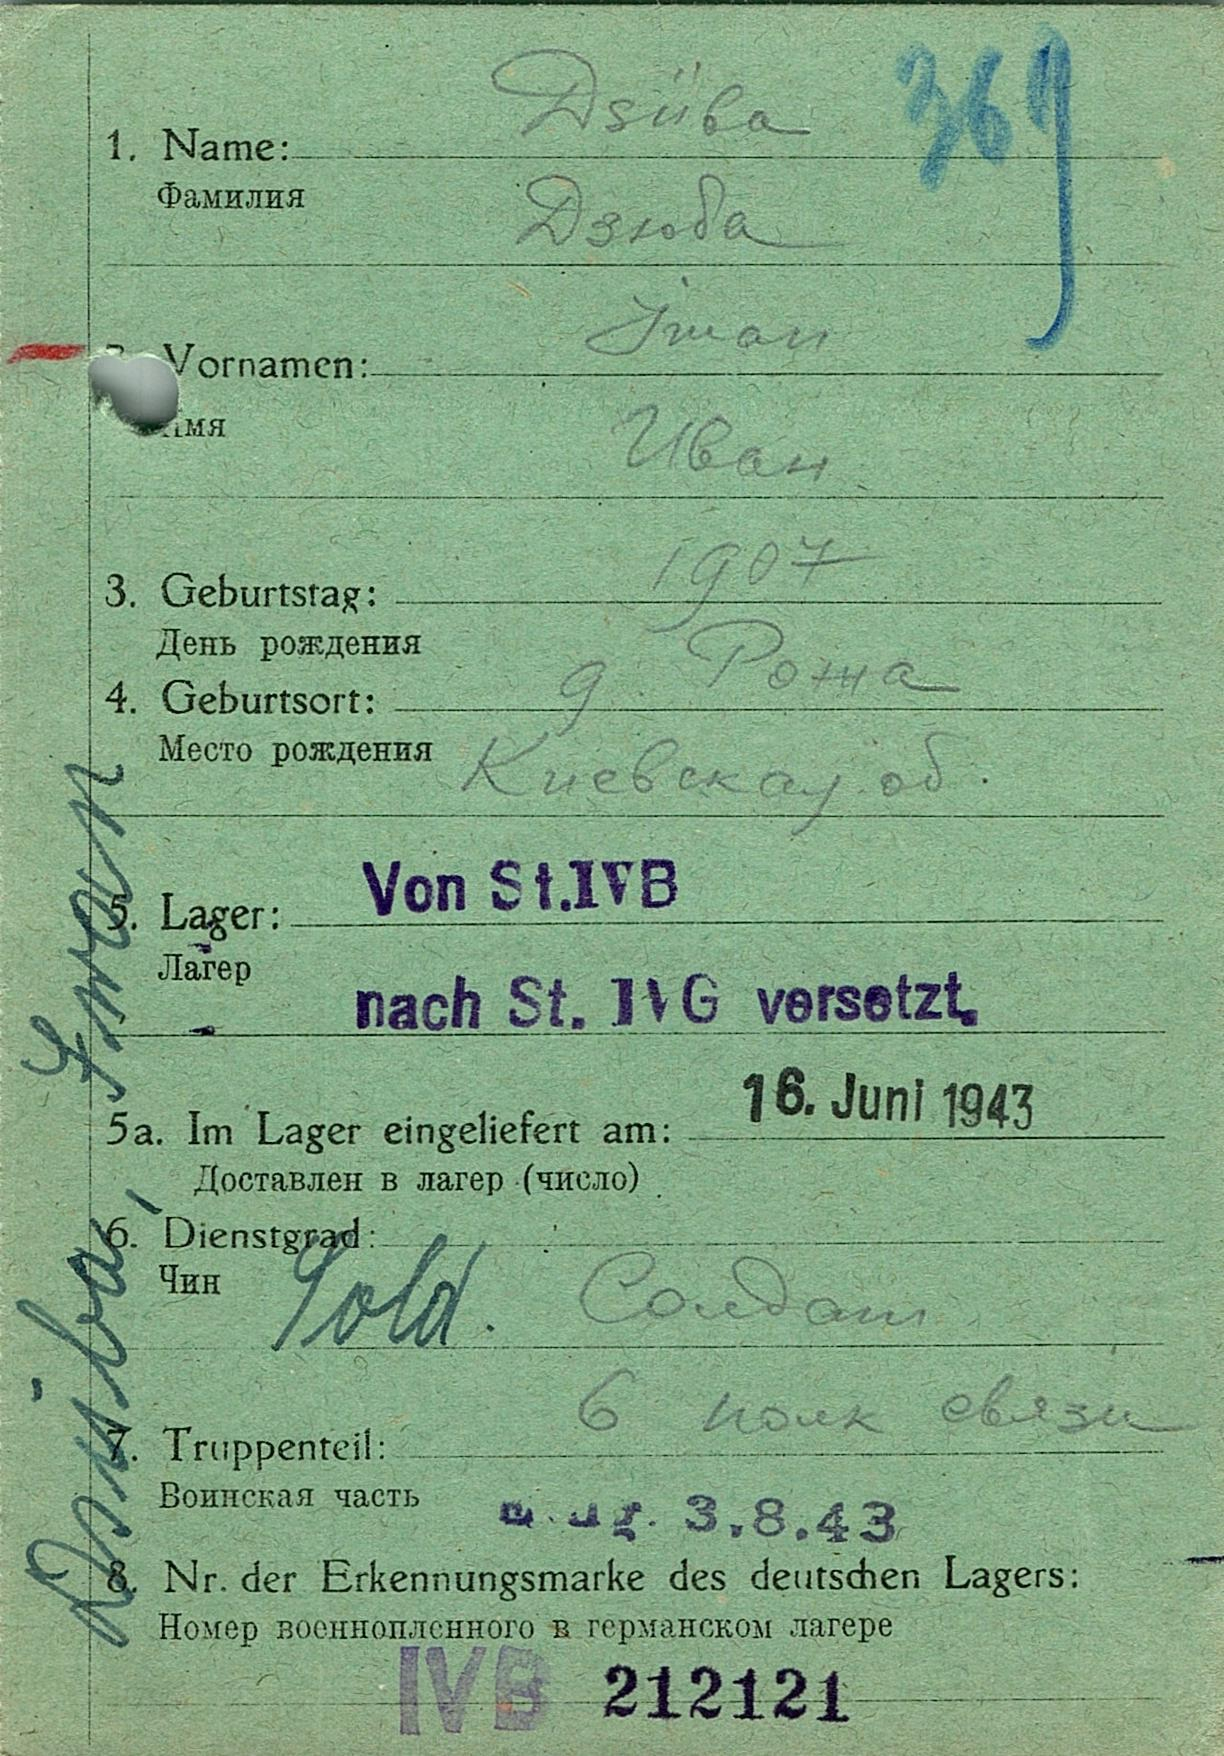 369
Dsüba
1. Name:
Фамилия
Дзюба
Iwan
Vornamen:
Имя
Иван
1907
3. Geburtstag:
День рождения
д. Рожа
4. Geburtsort:
Место рождения
Киевская об.
Von St. IVB
5. Lager:
Лагер
nach St. IVG versetzt.
16. Juni 1943
5a. Im Lager eingeliefert am:
Доставлен в лагер (число)
6. Dienstgrad:
Чин
Sold. Солдат
6 полк связи
7. Truppenteil:
Воинская часть
3.8.43
8. Nr. der Erkennungsmarke des deutschen Lagers:
Номер военнопленного в германском лагере
IVB 212121
Dsüba, Iwan